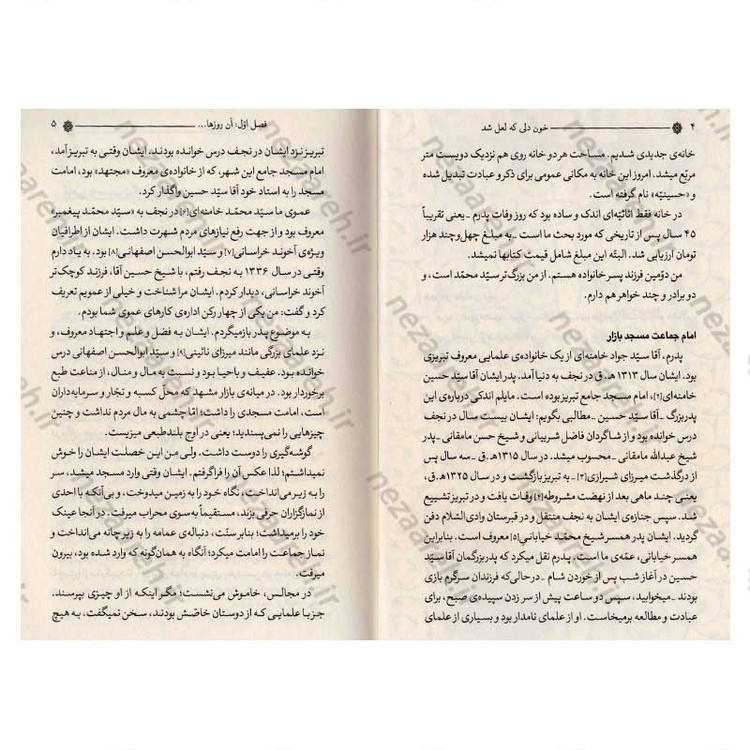 ۴ خون دلی که لعل شد
خانه‌ی جدیدی شدیم. مساحت هر دو خانه روی هم نزدیک دویست متر
مربّع میشد. امروز این خانه به مکانی عمومی برای ذکر و عبادت تبدیل شده
و «حسینیّه» نام گرفته است.
در خانه فقط اثاثیّه‌ای اندک و ساده بود که روز وفات پدرم ـ یعنی تقریباً
۴۵ سال پس از تاریخی که مورد بحث ما است ـ به مبلغ چهل‌وچند هزار
تومان ارزیابی شد. البتّه این مبلغ شامل قیمت کتابها نمیشد.
من دوّمین فرزند پسر خانواده هستم. از من بزرگ‌تر سیّد محمّد است، و
دو برادر و چند خواهر هم دارم.
امام جماعت مسجد بازار
پدرم، آقا سیّد جواد خامنه‌ای از یک خانواده‌ی علمایی معروف تبریزی
بود. ایشان سال ۱۳۱۳ هـ. ق در نجف به دنیا آمد. پدر ایشان آقا سیّد حسین
خامنه‌ای[۲]، امام مسجد جامع تبریز بوده است. مایلم اندکی درباره‌ی این
پدربزرگ ـ آقا سیّد حسین ـ مطالبی بگویم: ایشان بیست سال در نجف
درس خوانده بود و از شاگردان فاضل شربیانی و شیخ حسن مامقانی ـ پدر
شیخ عبدالله مامقانی ـ محسوب میشد. در سال ۱۳۱۵هـ. ق ـ سه سال پس
از درگذشت میرزای شیرازی[۳] ـ به تبریز بازگشت و در سال ۱۳۲۵هـ. ق،
یعنی چند ماهی بعد از نهضت مشروطه[۴] وفات یافت و در تبریز تشییع
شد. سپس جنازه‌ی ایشان به نجف منتقل و در قبرستان وادی‌السّلام دفن
گردید. ایشان پدر همسر شیخ محمّد خیابانی[۵] معروف است. بنابراین
همسر خیابانی، عمّه‌ی ما است. پدرم نقل میکرد که پدربزرگمان آقا سیّد
حسین در آغاز شب پس از خوردن شام ـ درحالی‌که فرزندان سرگرم بازی
بودند ـ میخوابید، سپس دو ساعت پیش از سر زدن سپیده‌ی صبح، برای
عبادت و مطالعه برمیخاست. او از علمای نامدار بود و بسیاری از علمای
فصل اوّل: آن روزها... ۵
تبریز نزد ایشان در نجف درس خوانده بودند. ایشان وقتی به تبریز آمد،
امام مسجد جامع این شهر، که از خانواده‌ی معروف «مجتهد» بود، امامت
مسجد را به استاد خود آقا سیّد حسین واگذار کرد.
عموی ما سیّد محمّد خامنه‌ای[۶] در نجف به «سیّد محمّد پیغمبر»
معروف بود و از جهت رفع نیازهای مردم شهرت داشت. ایشان از اطرافیان
ویژه‌ی آخوند خراسانی[۷] و سیّد ابوالحسن اصفهانی[۸] بود. به یاد دارم
وقتی در سال ۱۳۳۶ به نجف رفتم، با شیخ حسین آقا، فرزند کوچک‌تر
آخوند خراسانی، دیدار کردم. ایشان مرا شناخت و خیلی از عمویم تعریف
کرد و گفت: من یکی از چهار رکن اداره‌ی کارهای عموی شما بودم.
به موضوع پدر بازمیگردم. ایشان به فضل و علم و اجتهاد معروف، و
نزد علمای بزرگی مانند میرزای نائینی[۹] و سیّد ابوالحسن اصفهانی درس
خوانده بود. عفیف و باحیا بود و نسبت به مال و منال، از مناعت طبع
برخوردار بود. در میانه‌ی بازار مشهد که محلّ کسبه و تجّار و سرمایه‌داران
است، امامت مسجدی را داشت؛ امّا چشمی به مال مردم نداشت و چنین
چیزهایی را نمی‌پسندید؛ یعنی در اوج بلندطبعی میزیست.
گوشه‌گیری را دوست داشت. ولی من این خصلت ایشان را خوش
نمیداشتم؛ لذا عکس آن را فراگرفتم. ایشان وقتی وارد مسجد میشد، سر
را به زیر می‌انداخت، نگاه خود را به زمین میدوخت، و بی‌آنکه با احدی
از نمازگزاران حرفی بزند، مستقیماً به‌سوی محراب میرفت. در آنجا عینک
خود را برمیداشت؛ بنابر سنّت، دنباله‌ی عمامه را به زیر چانه می‌انداخت و
نماز جماعت را امامت میکرد؛ آنگاه به همان‌گونه که وارد شده بود، بیرون
میرفت.
در مجالس، خاموش می‌نشست؛ مگر اینکه از او چیزی بپرسند.
جز با علمایی که از دوستان خاصّش بودند، سخن نمیگفت، به هیچ
nezaareh.ir